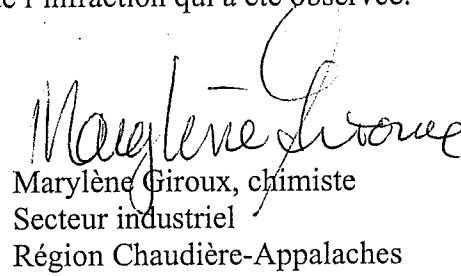 l'infraction qui a été observée.
Marylène Giroux
Marylène Giroux, chimiste
Secteur industriel
Région Chaudière-Appalaches